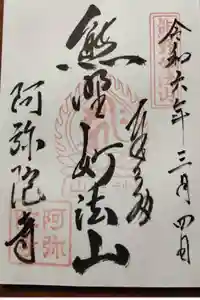 令和六年三月四日
奉拝
熊野妙法山
阿弥陀寺
阿弥